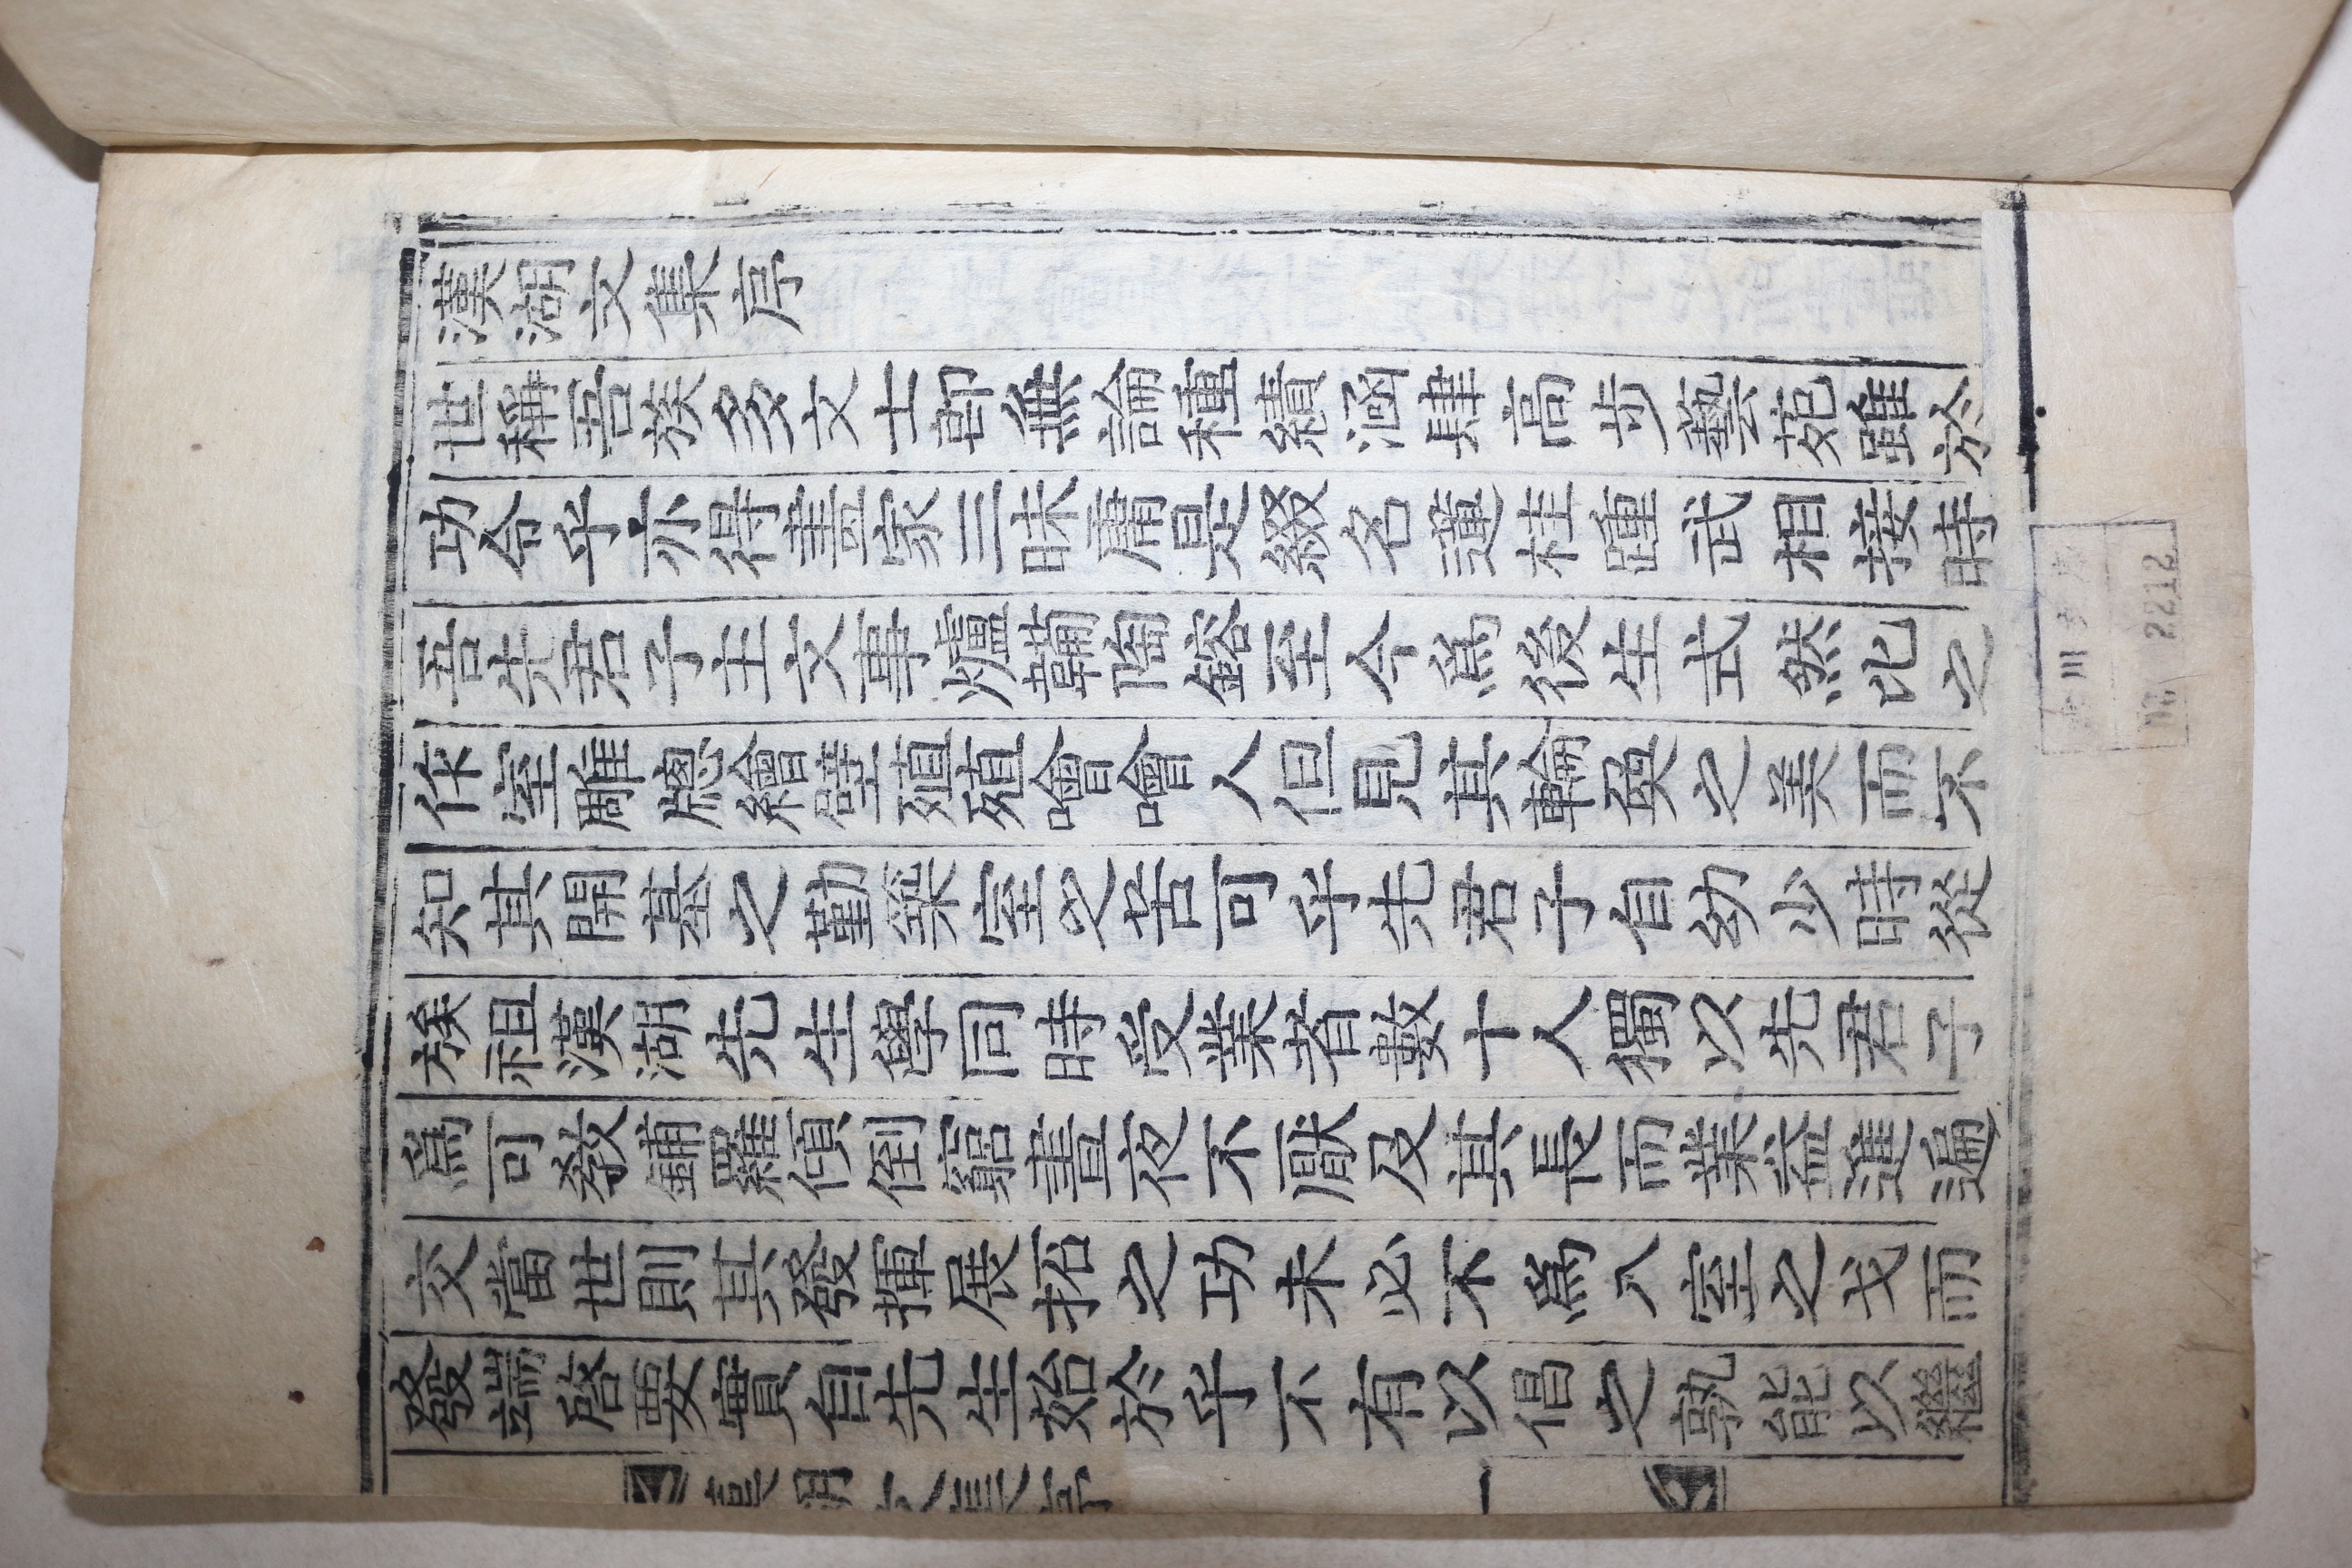 漢湖文集序
世稱吾族多文士即無論種績涵肆高步藝苑雖於
功令乎亦得畵家三昧庸是綴名蓮桂踵武相接時
吾先君子主文事爐鞴陶鎔至今爲後生式然比之
作室雕牕繪壁殖殖噲噲人但見其輪奐之美而不
知其開基之勤築室之苦可乎先君子自幼少時從
族祖漢湖先生學同時受業者數十人獨以先君子
爲可敎鋪羅傾倒窮晝夜不厭及其長而業益進遍
交當世則其發揮展拓之功未必不爲入室之戈而
發端啓要實自先生始於乎不有以倡之孰能以繼
漢湖文集序 一
2212